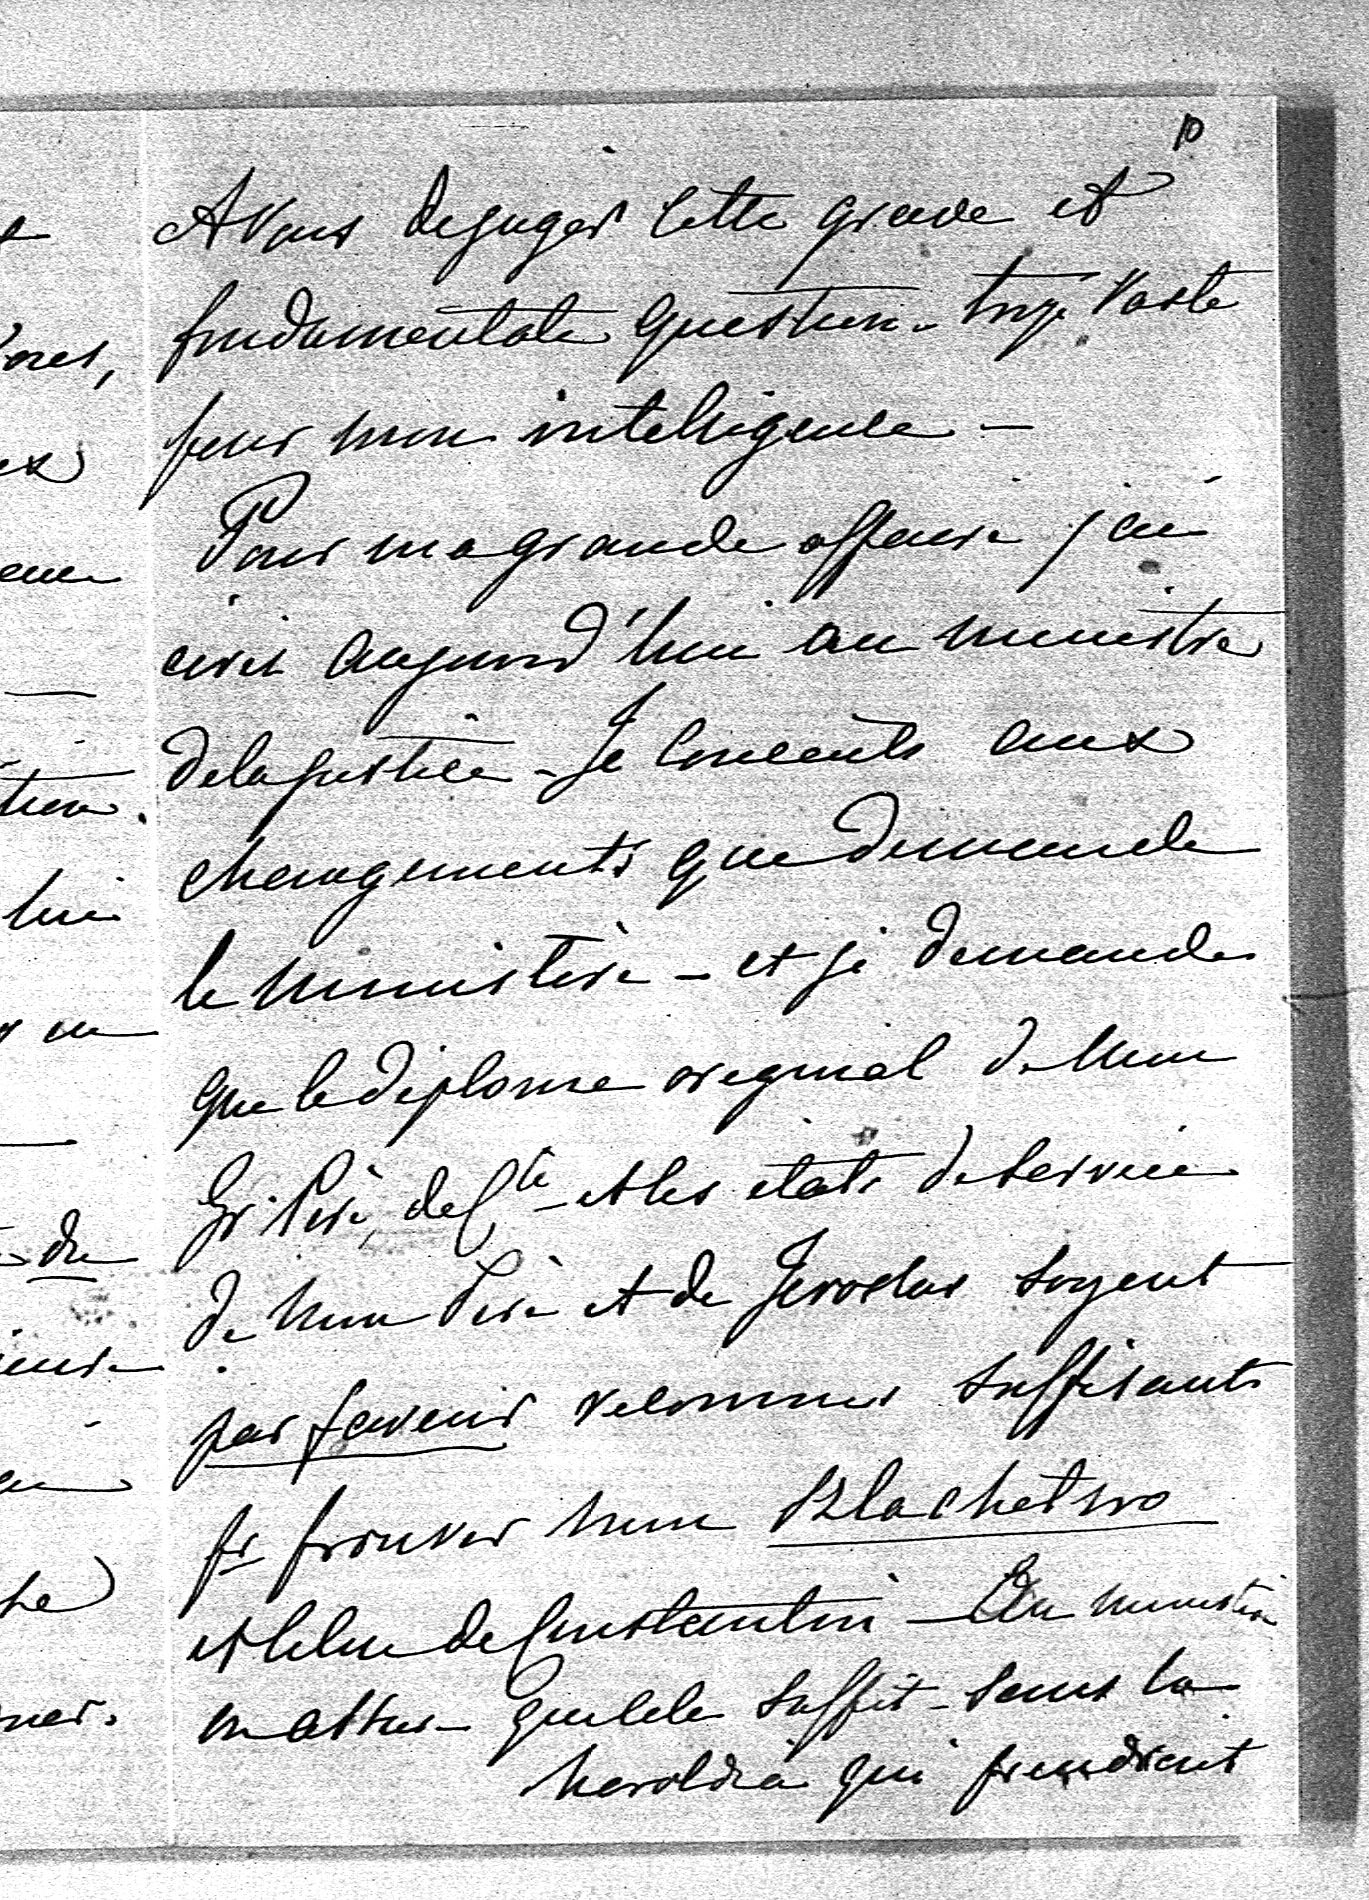 10
A Vous de juger cette grave et
fondamentale question - trop vaste
pour mon intelligence -
Pour ma grande affaire j'ai
ecrit aujourd'hui au ministre
de la justice - Je consents aux
changements que demande
le ministère - et je demande
que le diplome original de mon
Gr. Père, de Cte - et les etats de service
de mon Père et de Jeroslas soyent
par faveur reconnus suffisants
pr prouver mon Szlachetwo
et celui de Constantin - Au ministère
on assure que cela suffit - sans la
heroldia qui prendrait